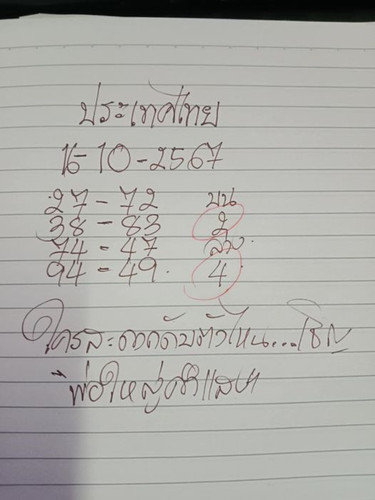 ประเทศไทย
16-10-2567
27-72 บน
38-83 2
74-47 ล่าง
94-49. 4
ใครสะดวกดับตัวไหน...เชิญ
พ่อใหญ่คำแสน